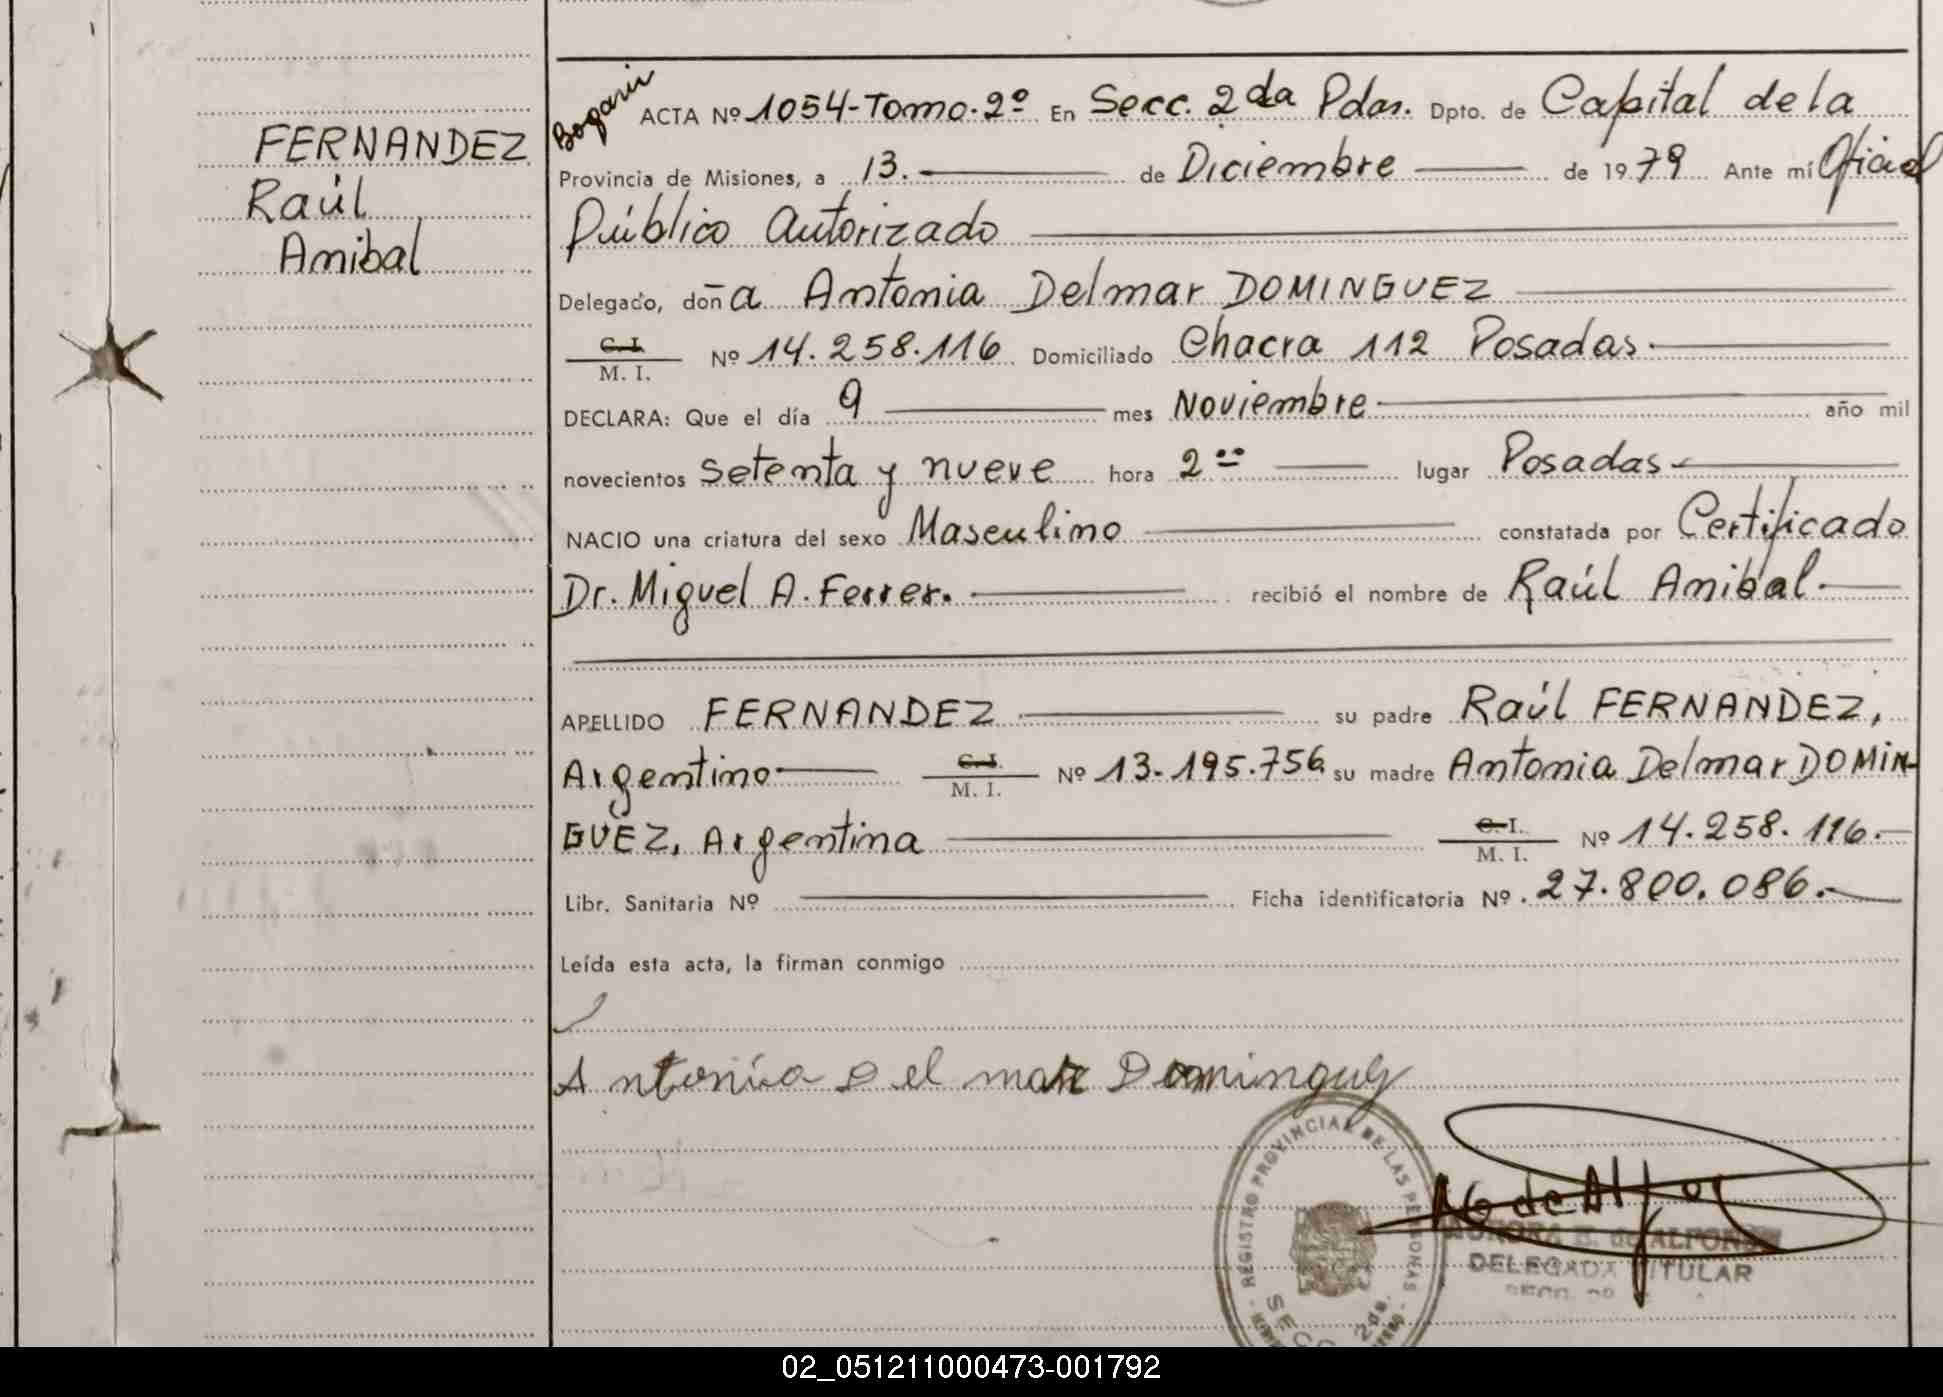 FERNANDEZ
Raúl
Anibal
Bogarin
ACTA Nº 1054-Tomo.2º En Secc. 2da Pdas. Dpto. de Capital de la
Provincia de Misiones, a 13. de Diciembre de 1979 Ante mí Oficial
Público Autorizado
Delegado, doña Antonia Delmar DOMINGUEZ
C. I.
M. I. Nº 14.258.116 Domiciliado Chacra 112 Posadas.
DECLARA: Que el día 9 mes Noviembre año mil
novecientos setenta y nueve hora 2 lugar Posadas
NACIO una criatura del sexo Masculino constatada por Certificado
Dr. Miguel A. Ferrer. recibió el nombre de Raúl Anibal.
APELLIDO FERNANDEZ su padre Raúl FERNANDEZ,
Argentino C. I.
M. I. Nº 13.195.756 su madre Antonia Delmar DOMIN-
GUEZ, Argentina C. I.
M. I. Nº 14.258.116.
Libr. Sanitaria Nº Ficha identificatoria Nº 27.800.086.
Leída esta acta, la firman conmigo
Antonia Del mar Dominguez
REGISTRO PROVINCIAL DE LAS PERSONAS
SECC. 2da.
A G de Alfon
AURORA G. de ALFONSO
DELEGADA TITULAR
SECC. 2ª
02_051211000473-001792